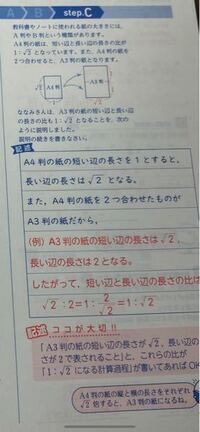 A B step.C
教科書やノートに使われる紙の大きさには,
A判やB判という種類があります。
A4判の紙は, 短い辺と長い辺の長さの比が
1:√2となっています。また, A4判の紙を
2つ合わせると, A3判の紙になります。
√2 A4判 A3判
1
ななみさんは, A3判の紙の短い辺と長い辺
の長さの比も1:√2となることを, 次の
ように説明しました。
説明の続きを書きなさい。
記述
A4判の紙の短い辺の長さを1とすると,
長い辺の長さは√2となる。
また, A4判の紙を2つ合わせたものが
A3判の紙だから,
(例) A3判の紙の短い辺の長さは√2,
長い辺の長さは2となる。
したがって, 短い辺と長い辺の長さの比は
√2:2=1:2/√2=1:√2
記述 ココが大切!!
「A3判の紙の短い辺の長さが√2, 長い辺の
さが2で表されること」と, これらの比が
「1:√2になる計算過程」が書いてあればOK
A4判の紙の縦と横の長さをそれぞれ
√2倍すると, A3判の紙になるね。